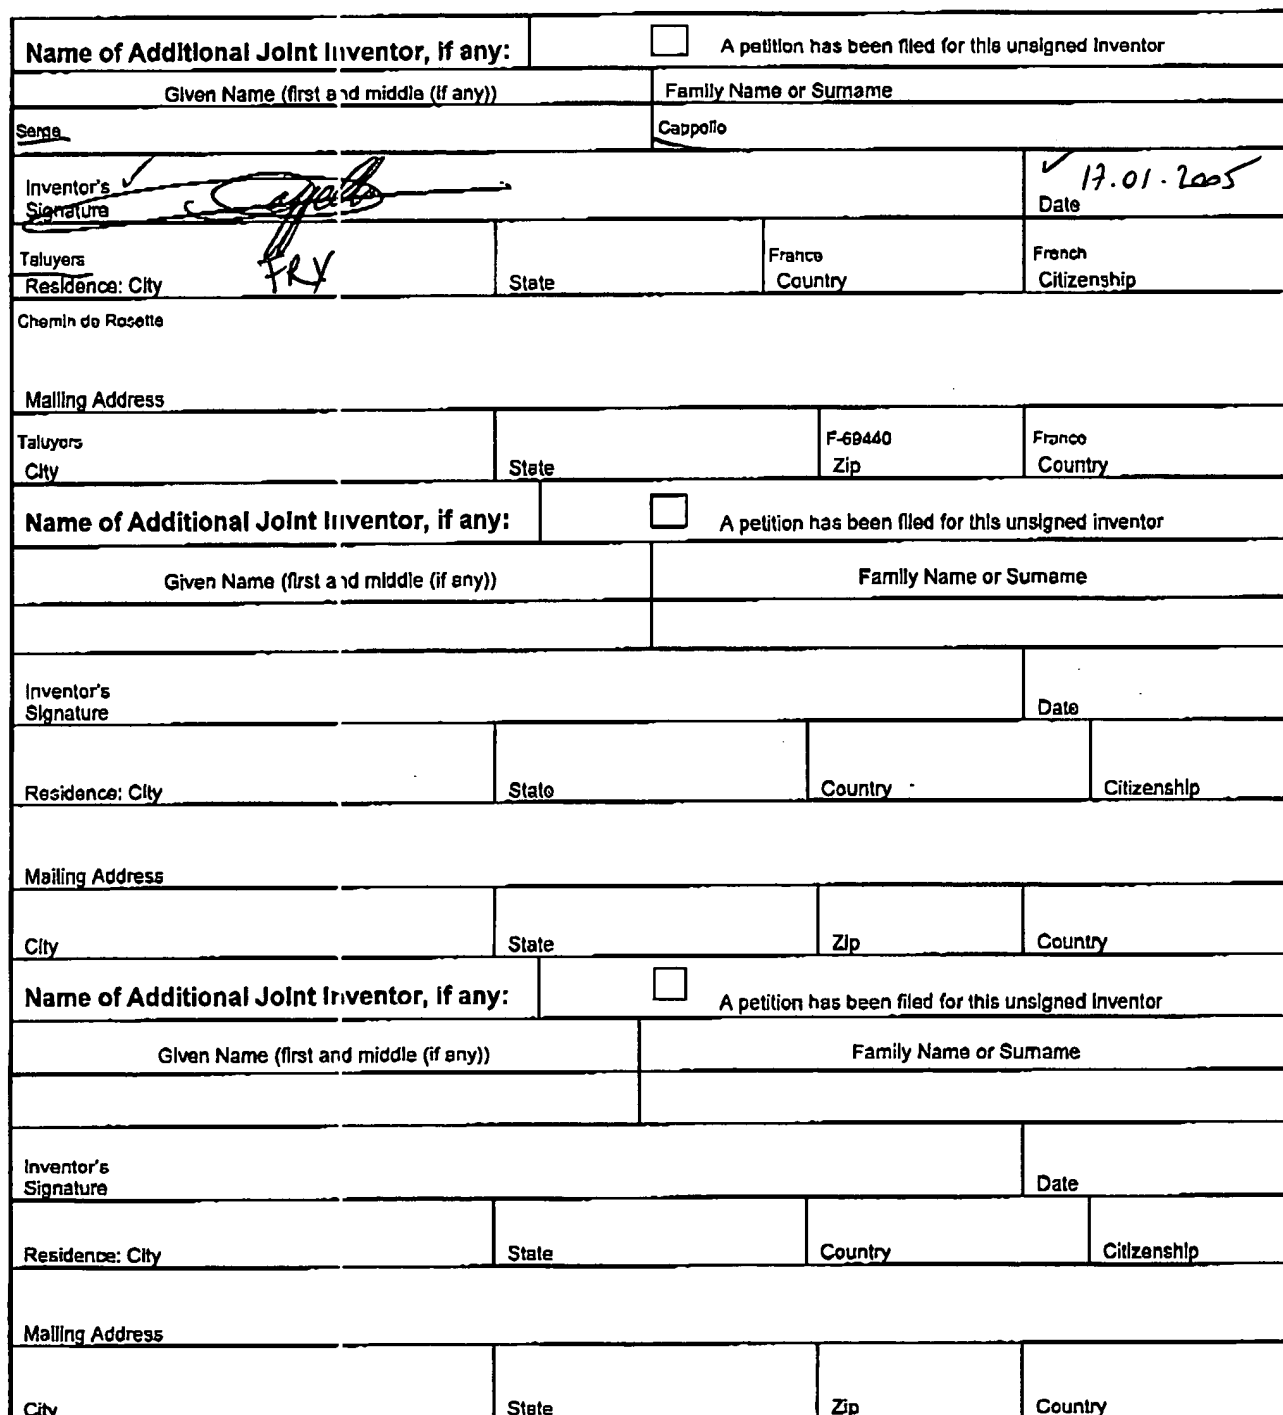 Name of Additional Joint Inventor, if any: A petition has been filed for this unsigned inventor
Given Name (first and middle (if any)) Family Name or Surname
Serge Cappollo
Inventor's
Signature
17.01.2005
Date
Taluyers FRX France French
Residence: City State Country Citizenship
Chemin de Rosette
Mailing Address
Taluyers F-69440 France
City State Zip Country
Name of Additional Joint Inventor, if any: A petition has been filed for this unsigned inventor
Given Name (first and middle (if any)) Family Name or Surname
Inventor's
Signature Date
Residence: City State Country Citizenship
Mailing Address
City State Zip Country
Name of Additional Joint Inventor, if any: A petition has been filed for this unsigned inventor
Given Name (first and middle (if any)) Family Name or Surname
Inventor's
Signature Date
Residence: City State Country Citizenship
Mailing Address
City State Zip Country